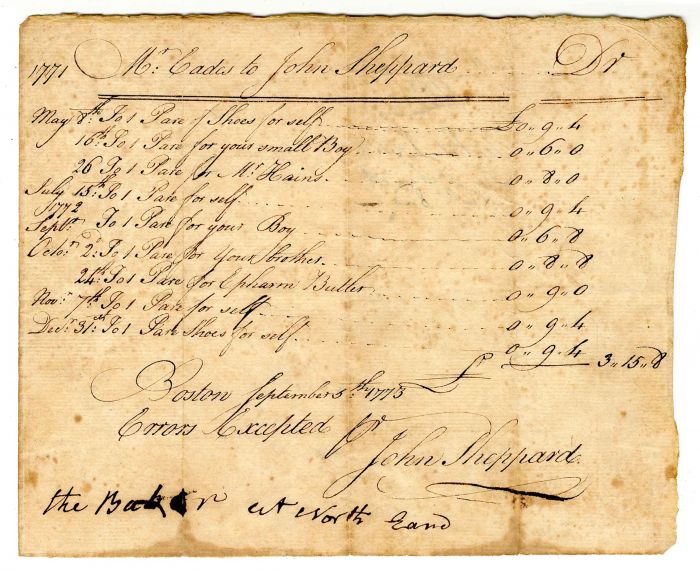 1771 Mr. Eades to John Sheppard Dr
May 8th To 1 Pare of Shoes for self £0 „ 9 „ 4
16th: To 1 Pare for your small Boy 0 „ 6 „ 0
26 To 1 Pare for Mr. Hains 0 „ 8 „ 0
July 15th: To 1 Pare for self 0 „ 9 „ 4
1772
Septbr. To 1 Pare for your Boy 0 „ 6 „ 8
Octor. 2d: To 1 Pare for Your brother 0 „ 8 „ 8
24th: To 1 Pare for Epharm Butler 0 „ 9 „ 0
Novr. 7th To 1 Pare for self 0 „ 9 „ 4
Decr. 31st: To 1 Pare Shoes for self 0 „ 9 „ 4
£ 3 „ 15 „ 8
Boston September 5th: 1773
Errors Excepted Pr
John Sheppard
the Baker at North Eand